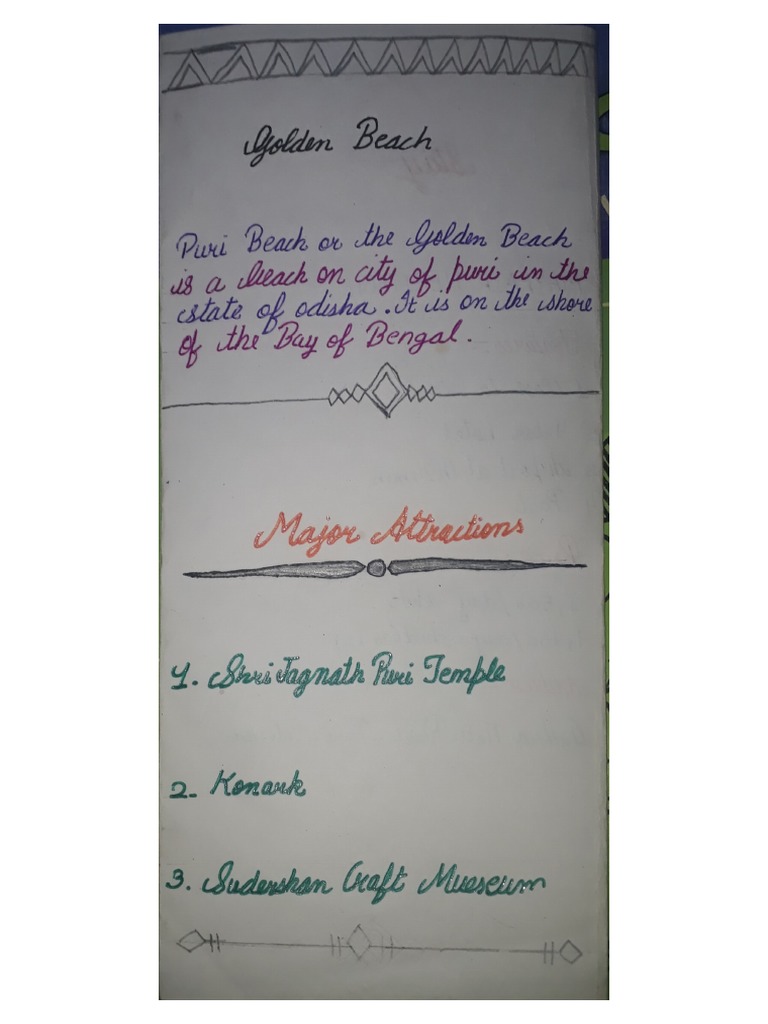 Golden Beach
Puri Beach or the Golden Beach
is a beach on city of puri in the
state of odisha. It is on the shore
of the Bay of Bengal.
Major Attractions
1. Shri Jagnath Puri Temple
2. Konark
3. Sudershan Craft Mueseum